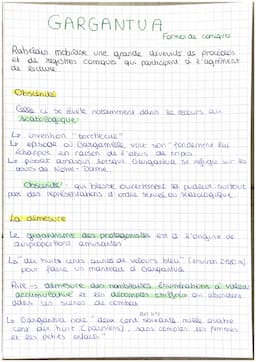 GARGANTUA
Formes de comique
Rabelais mobilise une grande diversité de procédés
et de registres comiques qui participent à l'agrément
de lecture.
Obscénité
Celle ci se révèle notamment dans le recours au
scatologique:
↳ invention "torchecul"
↳ épisode où Gargamelle voit son "fondement lui
échapper en raison de l'abus de tripes
↳ pissat lorsque Gargantua se réfugie sur les
tours de Notre-Dame.
Obscénité: qui blesse ouvertement la pudeur surtout
par des représentations d'ordre sexuel ou scatologique.
La démesure
Le gigantisme des protagonistes est à l'origine de
disproportions amusantes
↳ "dix huits cents aunes de velours bleu"
pour faire un manteau à Gargantua.
Rire → démesure des nombreuses énumérations à valeur
accumulative et les décomptes qui abondent
dans les scènes de combat
↳ Gargantua noie "deux cent soixante mille quatre
cent dix huit (parisiens), sans compter les femmes
et les petits enfants"